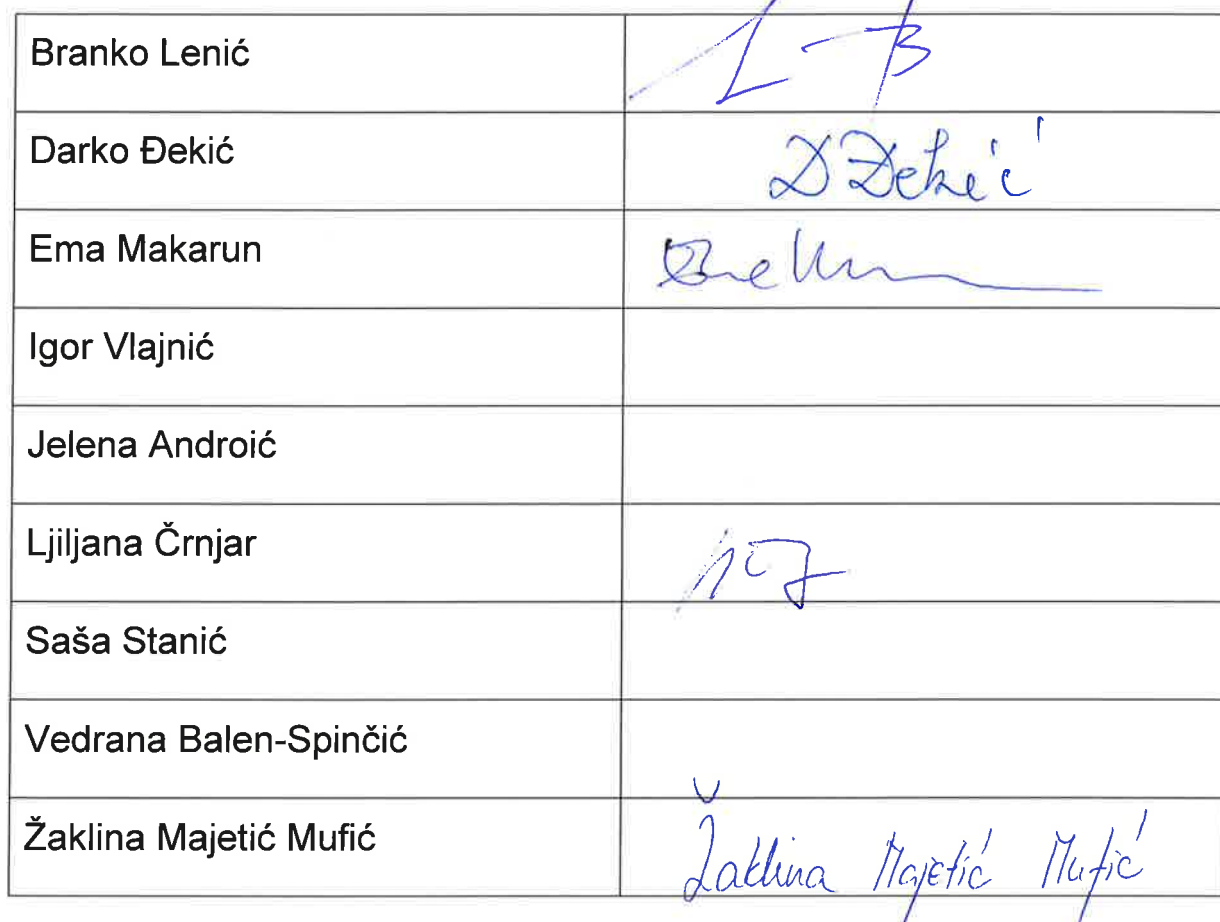 Branko Lenić
Darko Đekić D Đekić
Ema Makarun
Igor Vlajnić
Jelena Androić
Ljiljana Črnjar
Saša Stanić
Vedrana Balen-Spinčić
Žaklina Majetić Mufić Žaklina Majetić Mufić